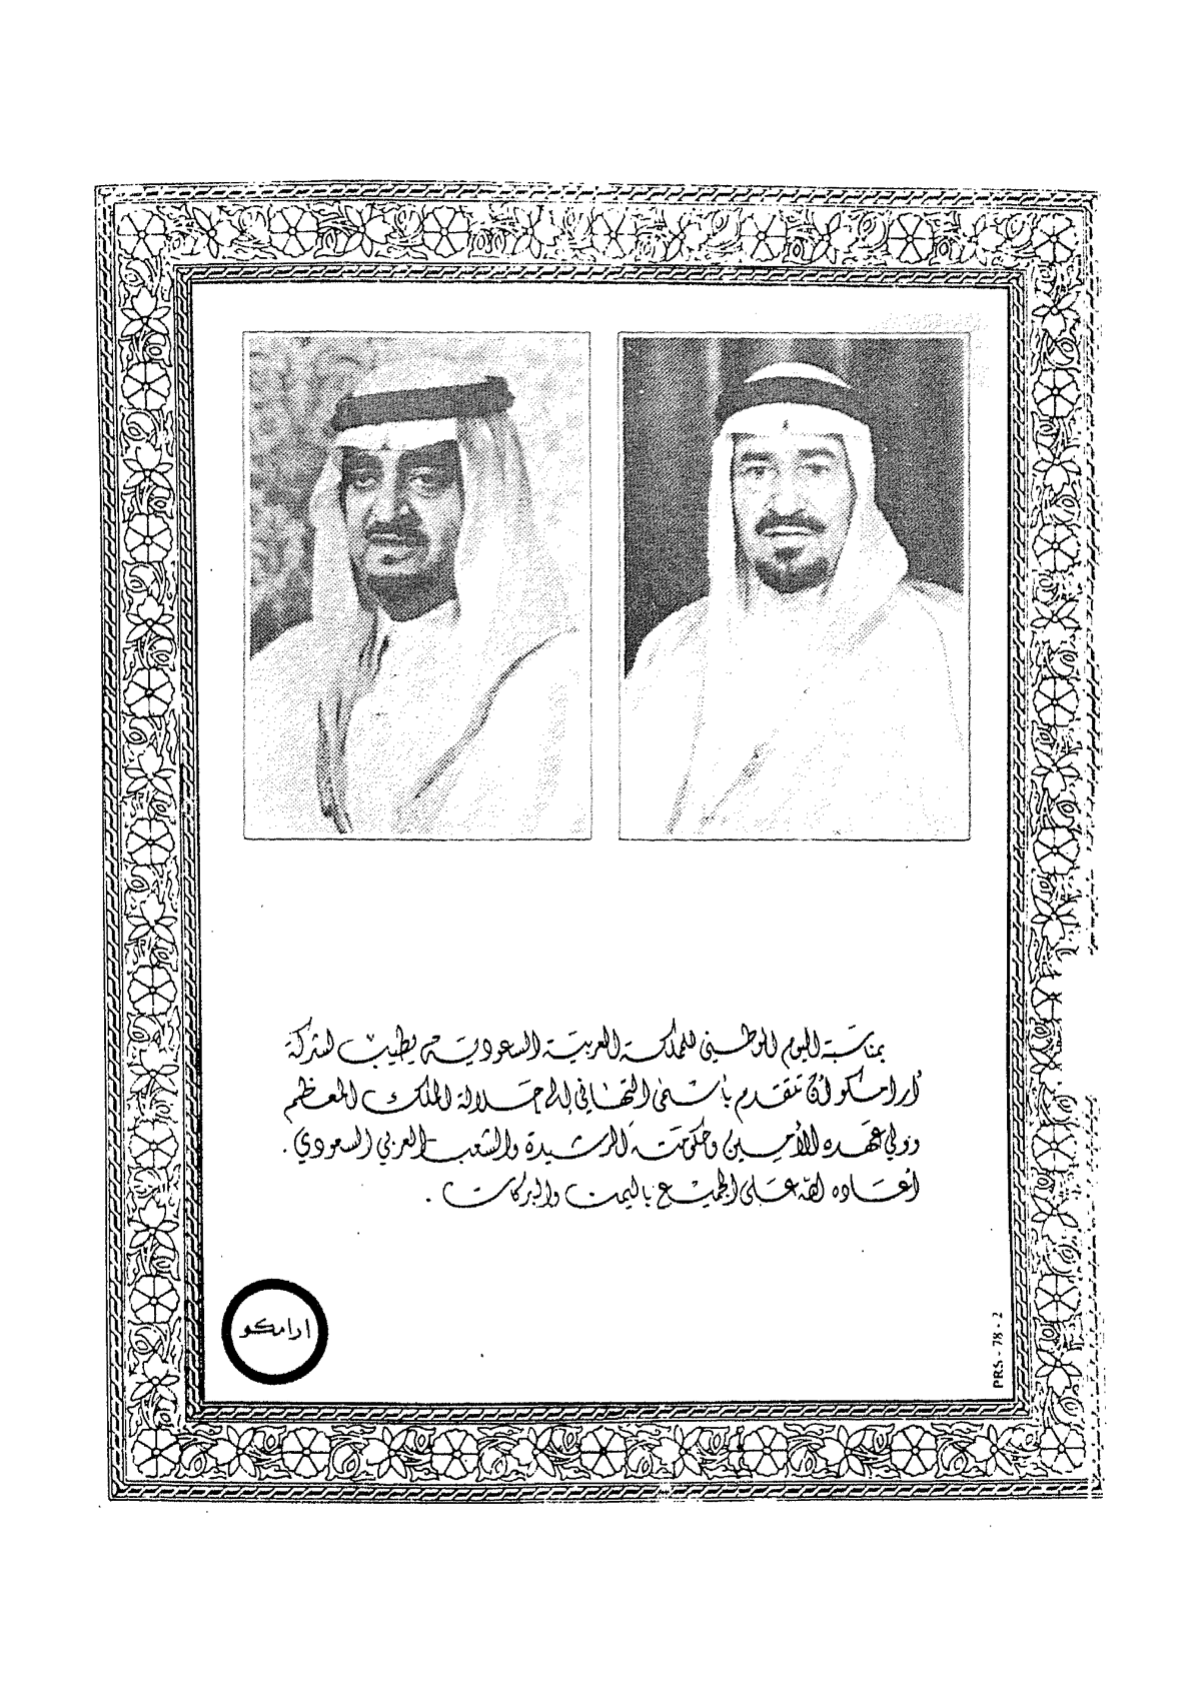 بمناسبة اليوم الوطني للمملكة العربية السعودية يطيب لشركة
أرامكو أن تتقدم بأسمى التهاني إلى جلالة الملك المعظم
وولي عهده الأمين وحكومته الرشيدة والشعب العربي السعودي .
أعاده الله على الجميع باليمن والبركات .
ارامكو
PRS - 78 - 2